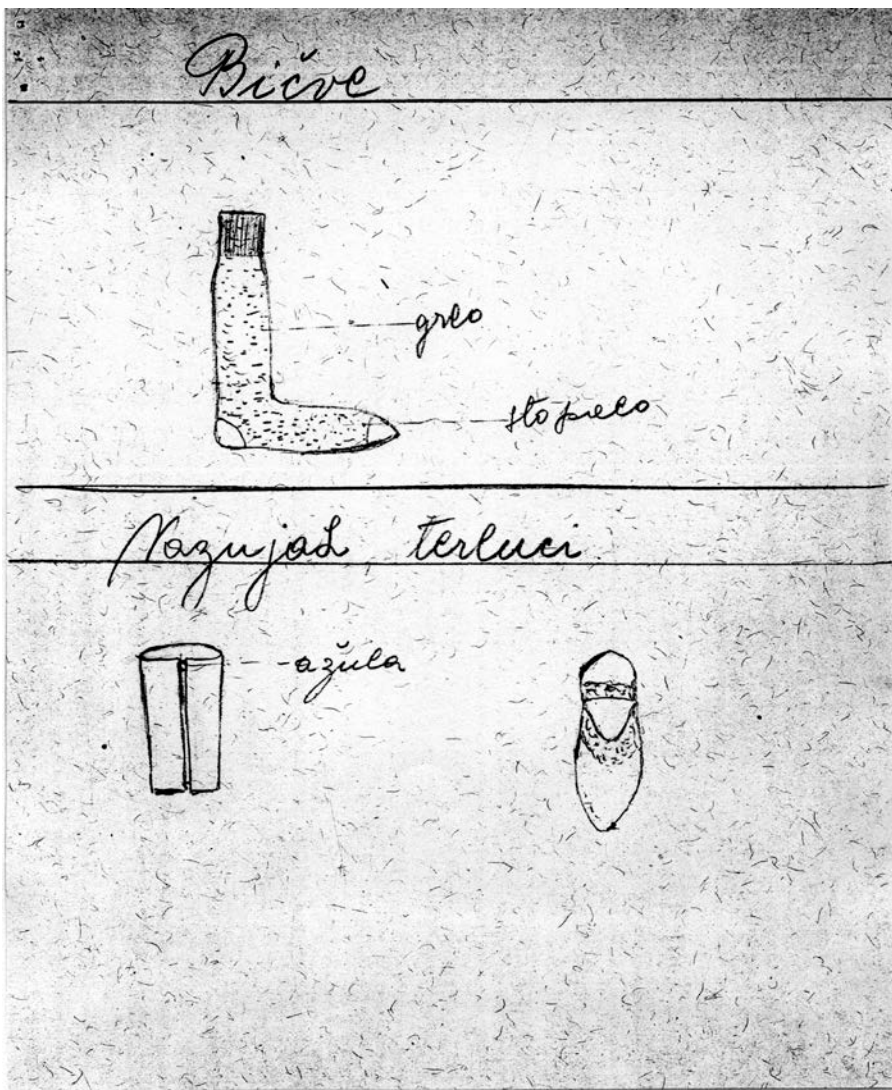 Bičve
grlo
Nazujak terluci
ažula